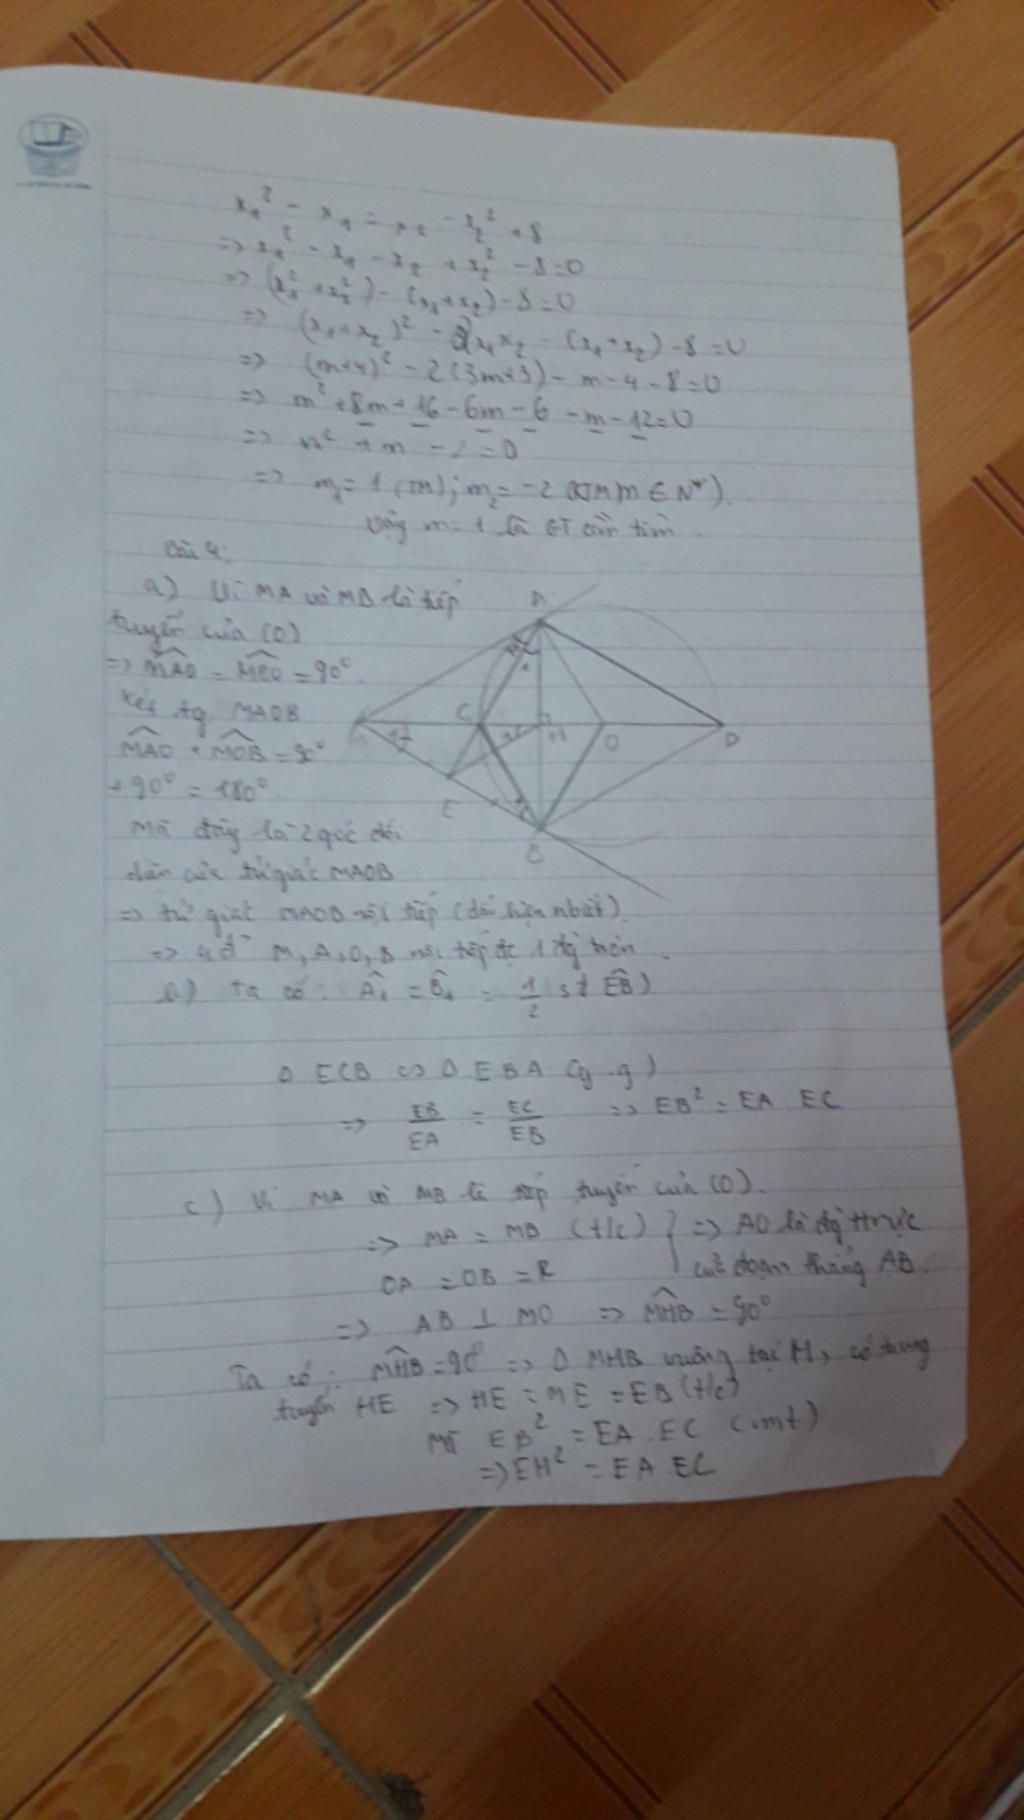 x₁² - x₁ = x₂ - x₂² + 8
=> x₁² - x₁ - x₂ + x₂² - 8 = 0
=> (x₁² + x₂²) - (x₁ + x₂) - 8 = 0
=> (x₁ + x₂)² - 2x₁x₂ - (x₁ + x₂) - 8 = 0
=> (m+4)² - 2(3m+3) - m - 4 - 8 = 0
=> m² + 8m + 16 - 6m - 6 - m - 12 = 0
=> m² + m - 2 = 0
=> m₁ = 1 (TM); m₂ = -2 (KTM m ∈ N*).
Vậy m = 1 là GT cần tìm.
Bài 4:
a) Vì MA và MB là tiếp
tuyến của (O)
=> MAO = MBO = 90°.
Xét tg MAOB
MAO + MOB = 90°
+ 90° = 180°.
Mà đây là 2 góc đối
diện của tứ giác MAOB
=> tứ giác MAOB nội tiếp (dấu hiệu nhbiết).
=> 4 đ' M, A, O, B nội tiếp đc 1 đg tròn.
A
C
H
O
D
E
B
b) Ta có: Â₁ = B̂₁ = 1/2 sđ EB)
Δ ECB ∽ Δ EBA (g.g)
=> EB/EA = EC/EB => EB² = EA . EC
c) Vì MA và MB là tiếp tuyến của (O).
=> MA = MB (t/c) } => AO là đg ttrực
OA = OB = R của đoạn thẳng AB.
=> AB ⊥ MO => MHB = 90°
Ta có: MHB = 90° => Δ MHB vuông tại H, có trung
tuyến HE => HE = ME = EB (t/c)
Mà EB² = EA . EC (cmt)
=> EH² = EA . EC